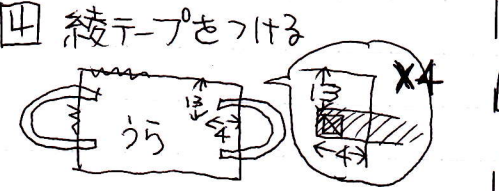 4 綾テープをつける
13
4
うら
13
4
×4